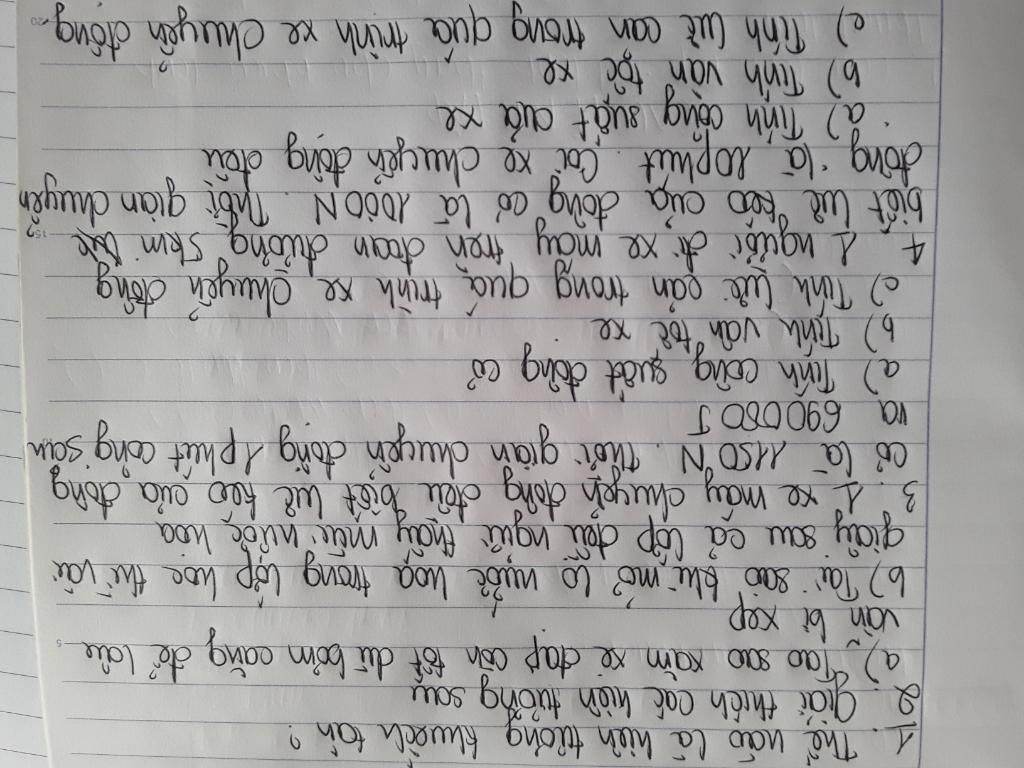 1. Thế nào là hiện tượng khuếch tán?
2. giải thích các hiện tượng sau
a) Tao sao xăm xe đạp còn tốt dù bơm căng để lâu
vẫn bị xẹp
b) Tại sao khi mở lọ nước hoa trong lớp học thì vài
giây sau cả lớp đều ngửi thấy mùi nước hoa
3. 1 xe máy chuyển động đều biết lực kéo của động
cơ là 1150N. Thời gian chuyển động 1 phút công san
ra 690000J
a) Tính công suất động cơ
b) Tính vận tốc xe
c) Tính lực cản trong quá trình xe chuyển động
4 1 người đi xe máy trên đoạn đường 5km
biết lực kéo của động cơ là 1000N. Thời gian chuyển
động là 10phút. Coi xe chuyển động đều
a) Tính công suất của xe
b) Tính vận tốc xe
c) Tính lực cản trong quá trình xe chuyển động